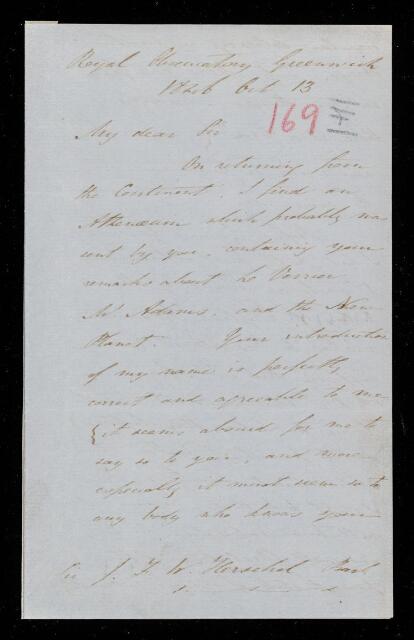 Royal Observatory Greenwich
1846 Oct 13
169
My dear Sir
On returning from
the Continent, I find an
Athenæum which probably was
sent by you, containing your
remarks about Le Verrier
Mr Adams, and the New
Planet. Your introduction
of my name is perfectly
correct and agreeable to me
{it seems absurd for me to
say so to you, and more
especially it must seem so to
any body who knows your
Sir J. F. W. Herschel Bart